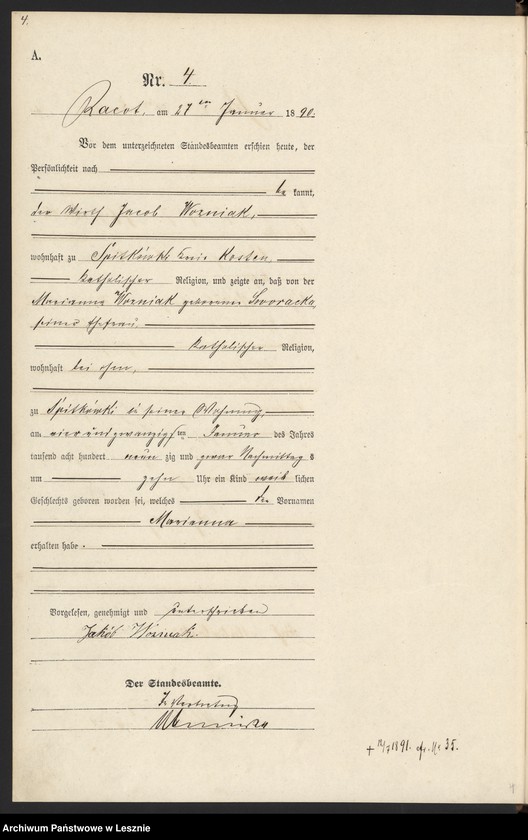 4.
A.
Nr. 4
Racot, am 27ten Januar 1890.
Vor dem unterzeichneten Standesbeamten erschien heute, der
Persönlichkeit nach
be kannt,
der Wirth Jacob Wozniak,
wohnhaft zu Spitkówki Kreis Kosten,
katholischer Religion, und zeigte an, daß von der
Marianna Wozniak geborenen
seiner Ehefrau
katholischer Religion,
wohnhaft bei ihm,
zu Spitkówki in seiner Wohnung,
am vier und zwanzigsten Januar des Jahres
tausend acht hundert neun zig und zwar Nachmittag s
um zehn Uhr ein Kind weib lichen
Geschlechts geboren worden sei, welches den Vornamen
Marianna
erhalten habe.
Vorgelesen, genehmigt und unterschrieben
Jakób Wozniak
Der Standesbeamte.
In Vertretung
+ 1891. Nr. 35.
Archiwum Państwowe w Lesznie